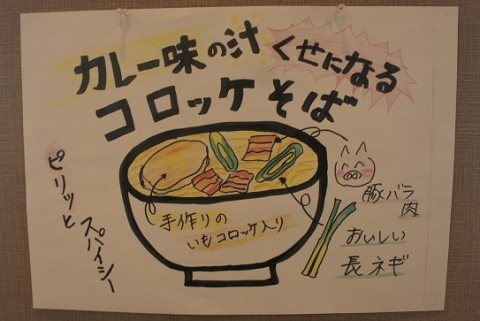 カレー味の汁くせになる
コロッケそば
ピリッと
スパイシー
手作りの
いもコロッケ入り
豚バラ
肉
おいしい
長ネギ